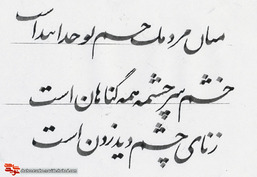 میان مردمک چشم تو خدا پیداست
خشم سرچشمه همه گناهان است
زنای چشم دید زدن است